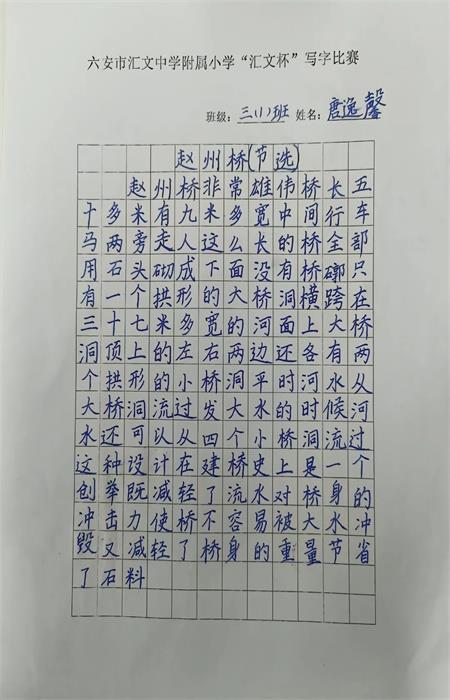 六安市汇文中学附属小学“汇文杯”写字比赛
班级：三(1)班 姓名：唐逸馨
赵州桥(节选)
赵州桥非常雄伟桥长五
十多米有九米多宽中间行车
马两旁走人这么长的桥全部
用石头砌成下面没有桥礅只
有一个拱形的大桥洞横跨在
三十七米多宽的河面上大桥
洞顶上的左右两边还各有两
个拱形的小桥洞平时河水从
大桥洞流过发大水的时候河
水还可以从四个小桥洞流过
这种设计在建桥史上是一个
创举既减轻了流水对桥身的
冲击力使桥不容易被大水冲
毁又减轻了桥身的重量节省
了石料